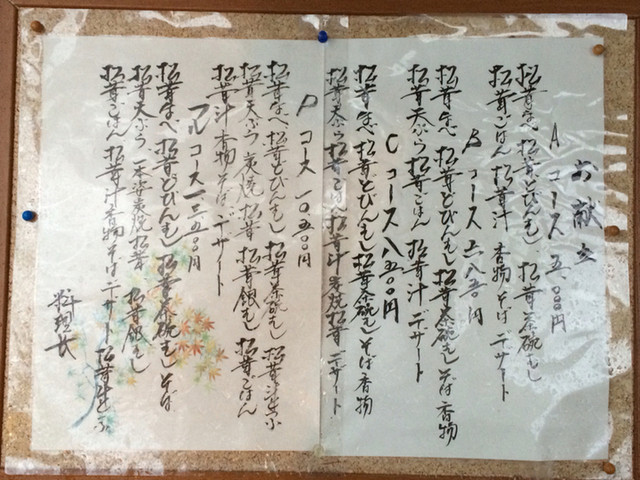 お献立
Aコース 五、〇〇〇円
松茸なべ 松茸どびんむし 松茸茶碗むし
松茸ごはん 松茸汁 香物 そば デザート
Bコース 六、八五〇円
松茸なべ 松茸どびんむし 松茸茶碗むし そば 香物
松茸天ぷら 松茸ごはん 松茸汁 デザート
Cコース 八、五〇〇円
松茸なべ 松茸どびんむし 松茸茶碗むし そば 香物
松茸天ぷら 松茸ごはん 松茸汁 炭焼松茸 デザート
Dコース 一〇、五〇〇円
松茸なべ 松茸どびんむし 松茸茶碗むし 松茸
松茸天ぷら 炭焼松茸 松茸銀むし 松茸ごはん
松茸汁 香物 そば デザート
フルコース 一三、五〇〇円
松茸なべ 松茸どびんむし 松茸茶碗むし そば
松茸天ぷら 一本姿炭焼松茸 松茸銀むし
松茸ごはん 松茸汁 香物 そば デザート 松茸
料理長